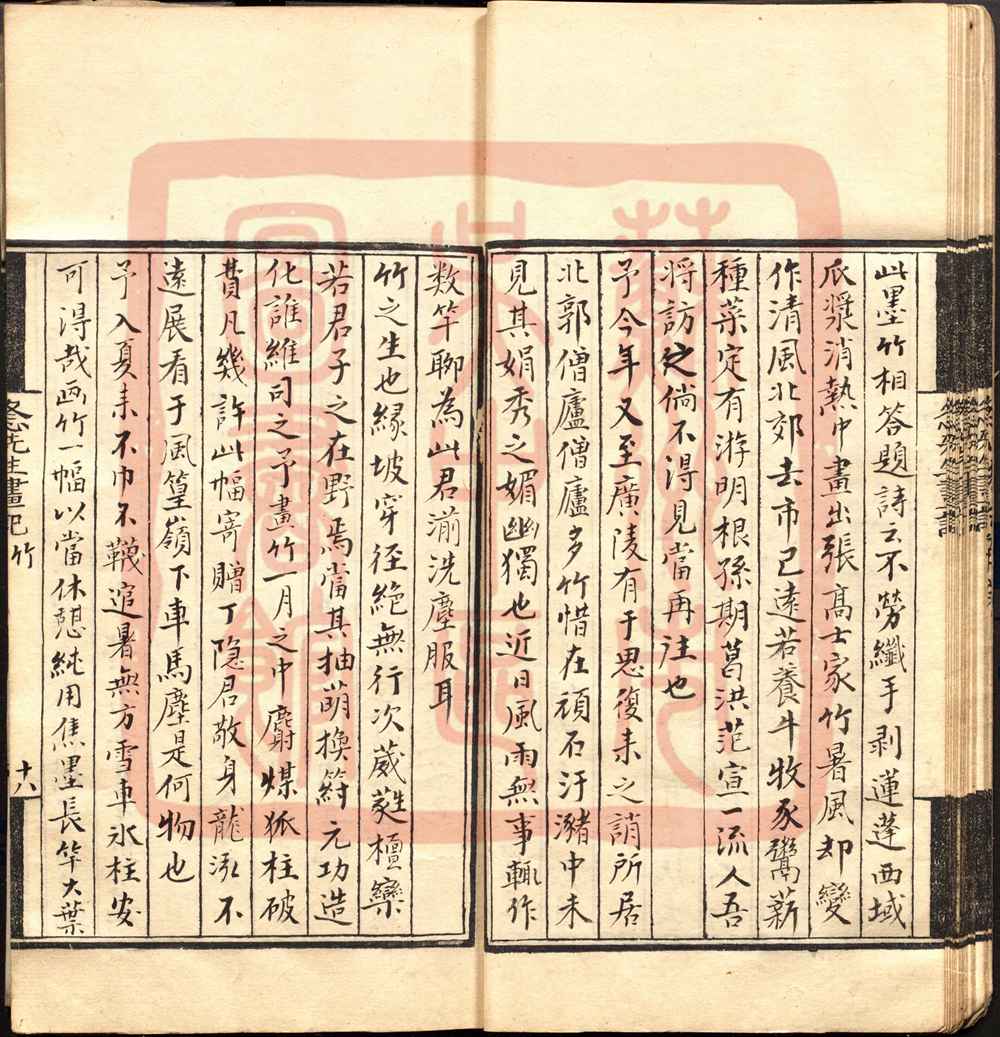 此墨竹相答題詩云不勞纖手剥蓮蓬西域
瓜漿消熱中畫出張髙士家竹暑風却變
作清風北郊去市已遠若養牛牧豕鬻薪
種菜定有游明根孫期葛洪范宣一流人吾
將訪之倘不得見當再往也
予今年又至廣陵有于思復来之誚所居
北郭僧廬僧廬多竹惜在頑石汙瀦中未
見其娟秀之媚幽獨也近日風雨無事輙作
数竿聊為此君湔洗塵服耳
竹之生也緣坡穿徑絕無行次葳蕤檀欒
若君子之在野焉當其抽萌換籜元功造
化誰維司之予畫竹一月之中麝煤狐柱破
費凡幾許此幅寄贈丁隐君敬身龍泓不
遠展看于風篁嶺下車馬塵是何物也
予入夏来不巾不韈逭暑無方雪車冰柱安
可淂哉画竹一幅以當休憩純用焦墨長竿大葉
冬花先生畫記 竹
十八